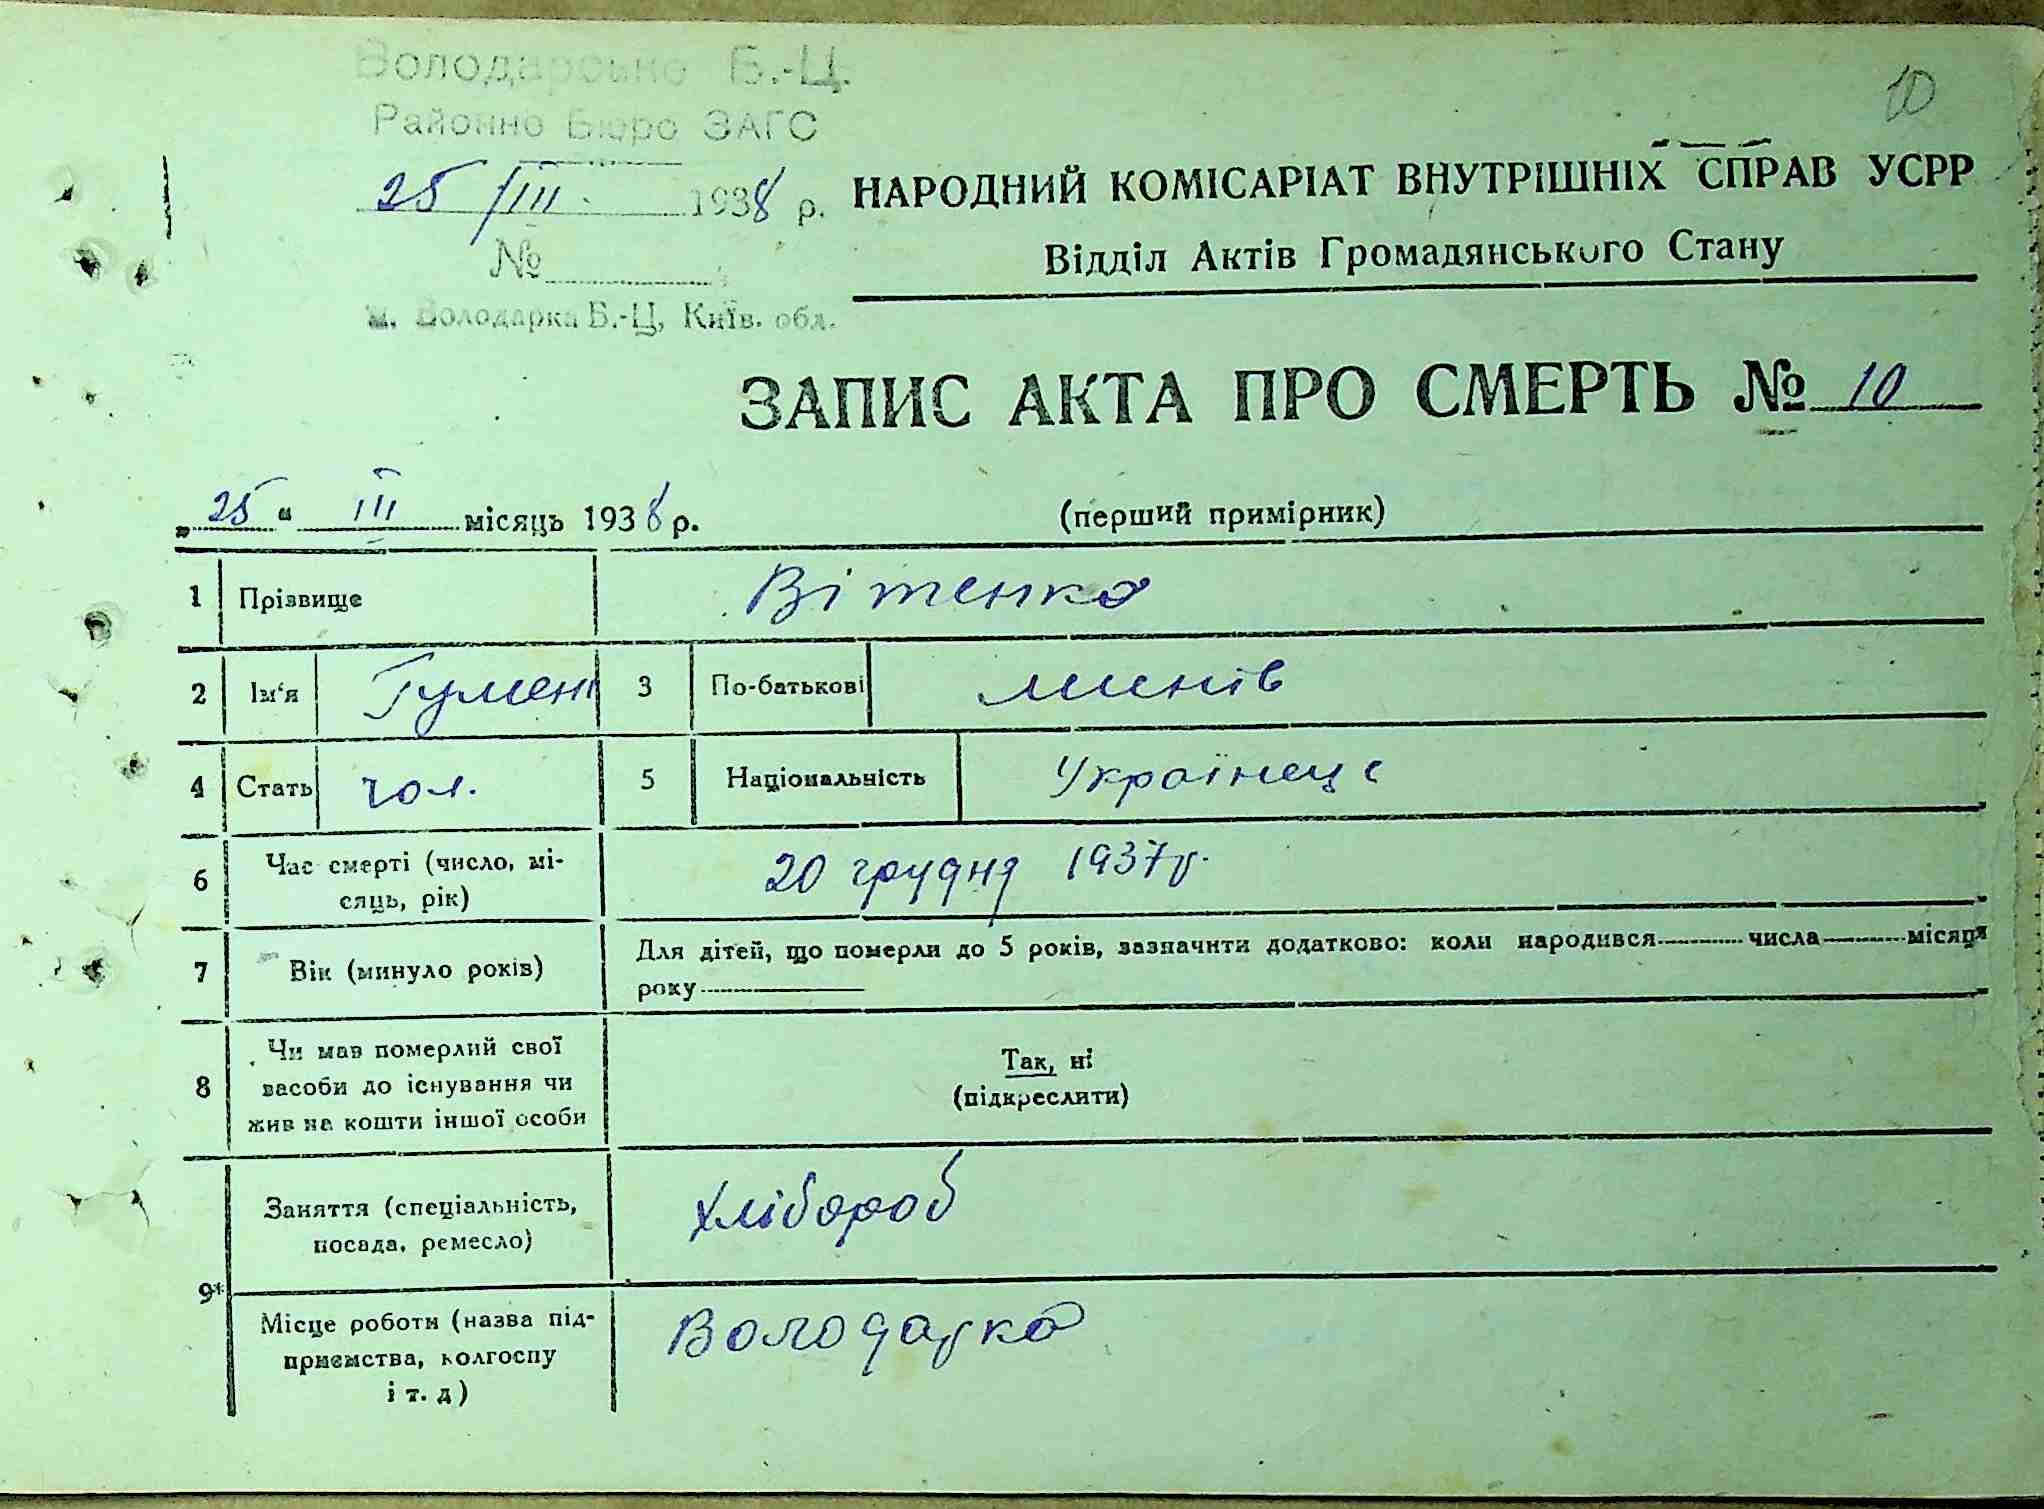 Володарське Б.-Ц.
10
Районне Бюро ЗАГС
25/III 1938 р.
НАРОДНИЙ КОМІСАРІАТ ВНУТРІШНІХ СПРАВ УСРР
№
Відділ Актів Громадянського Стану
м. Володарка Б.-Ц, Київ. обл.
ЗАПИС АКТА ПРО СМЕРТЬ № 10
„25“ III місяць 1938 р.
(перший примірник)
1 Прізвище Вітенко
2 Ім'я Гумен 3 По-батькові минів
4 Стать чол. 5 Національність Українець
6 Час смерті (число, мі-
сяць, рік)
20 грудня 1937 р.
7 Вік (минуло років)
Для дітей, що померли до 5 років, зазначити додатково: коли народився числа місяця
року
8 Чи мав померлий свої
засоби до існування чи
жив на кошти іншої особи
Так, ні
(підкреслити)
9*
Заняття (спеціальність,
посада, ремесло)
Хлібороб
Місце роботи (назва під-
приємства, колгоспу
і т. д)
Володарка